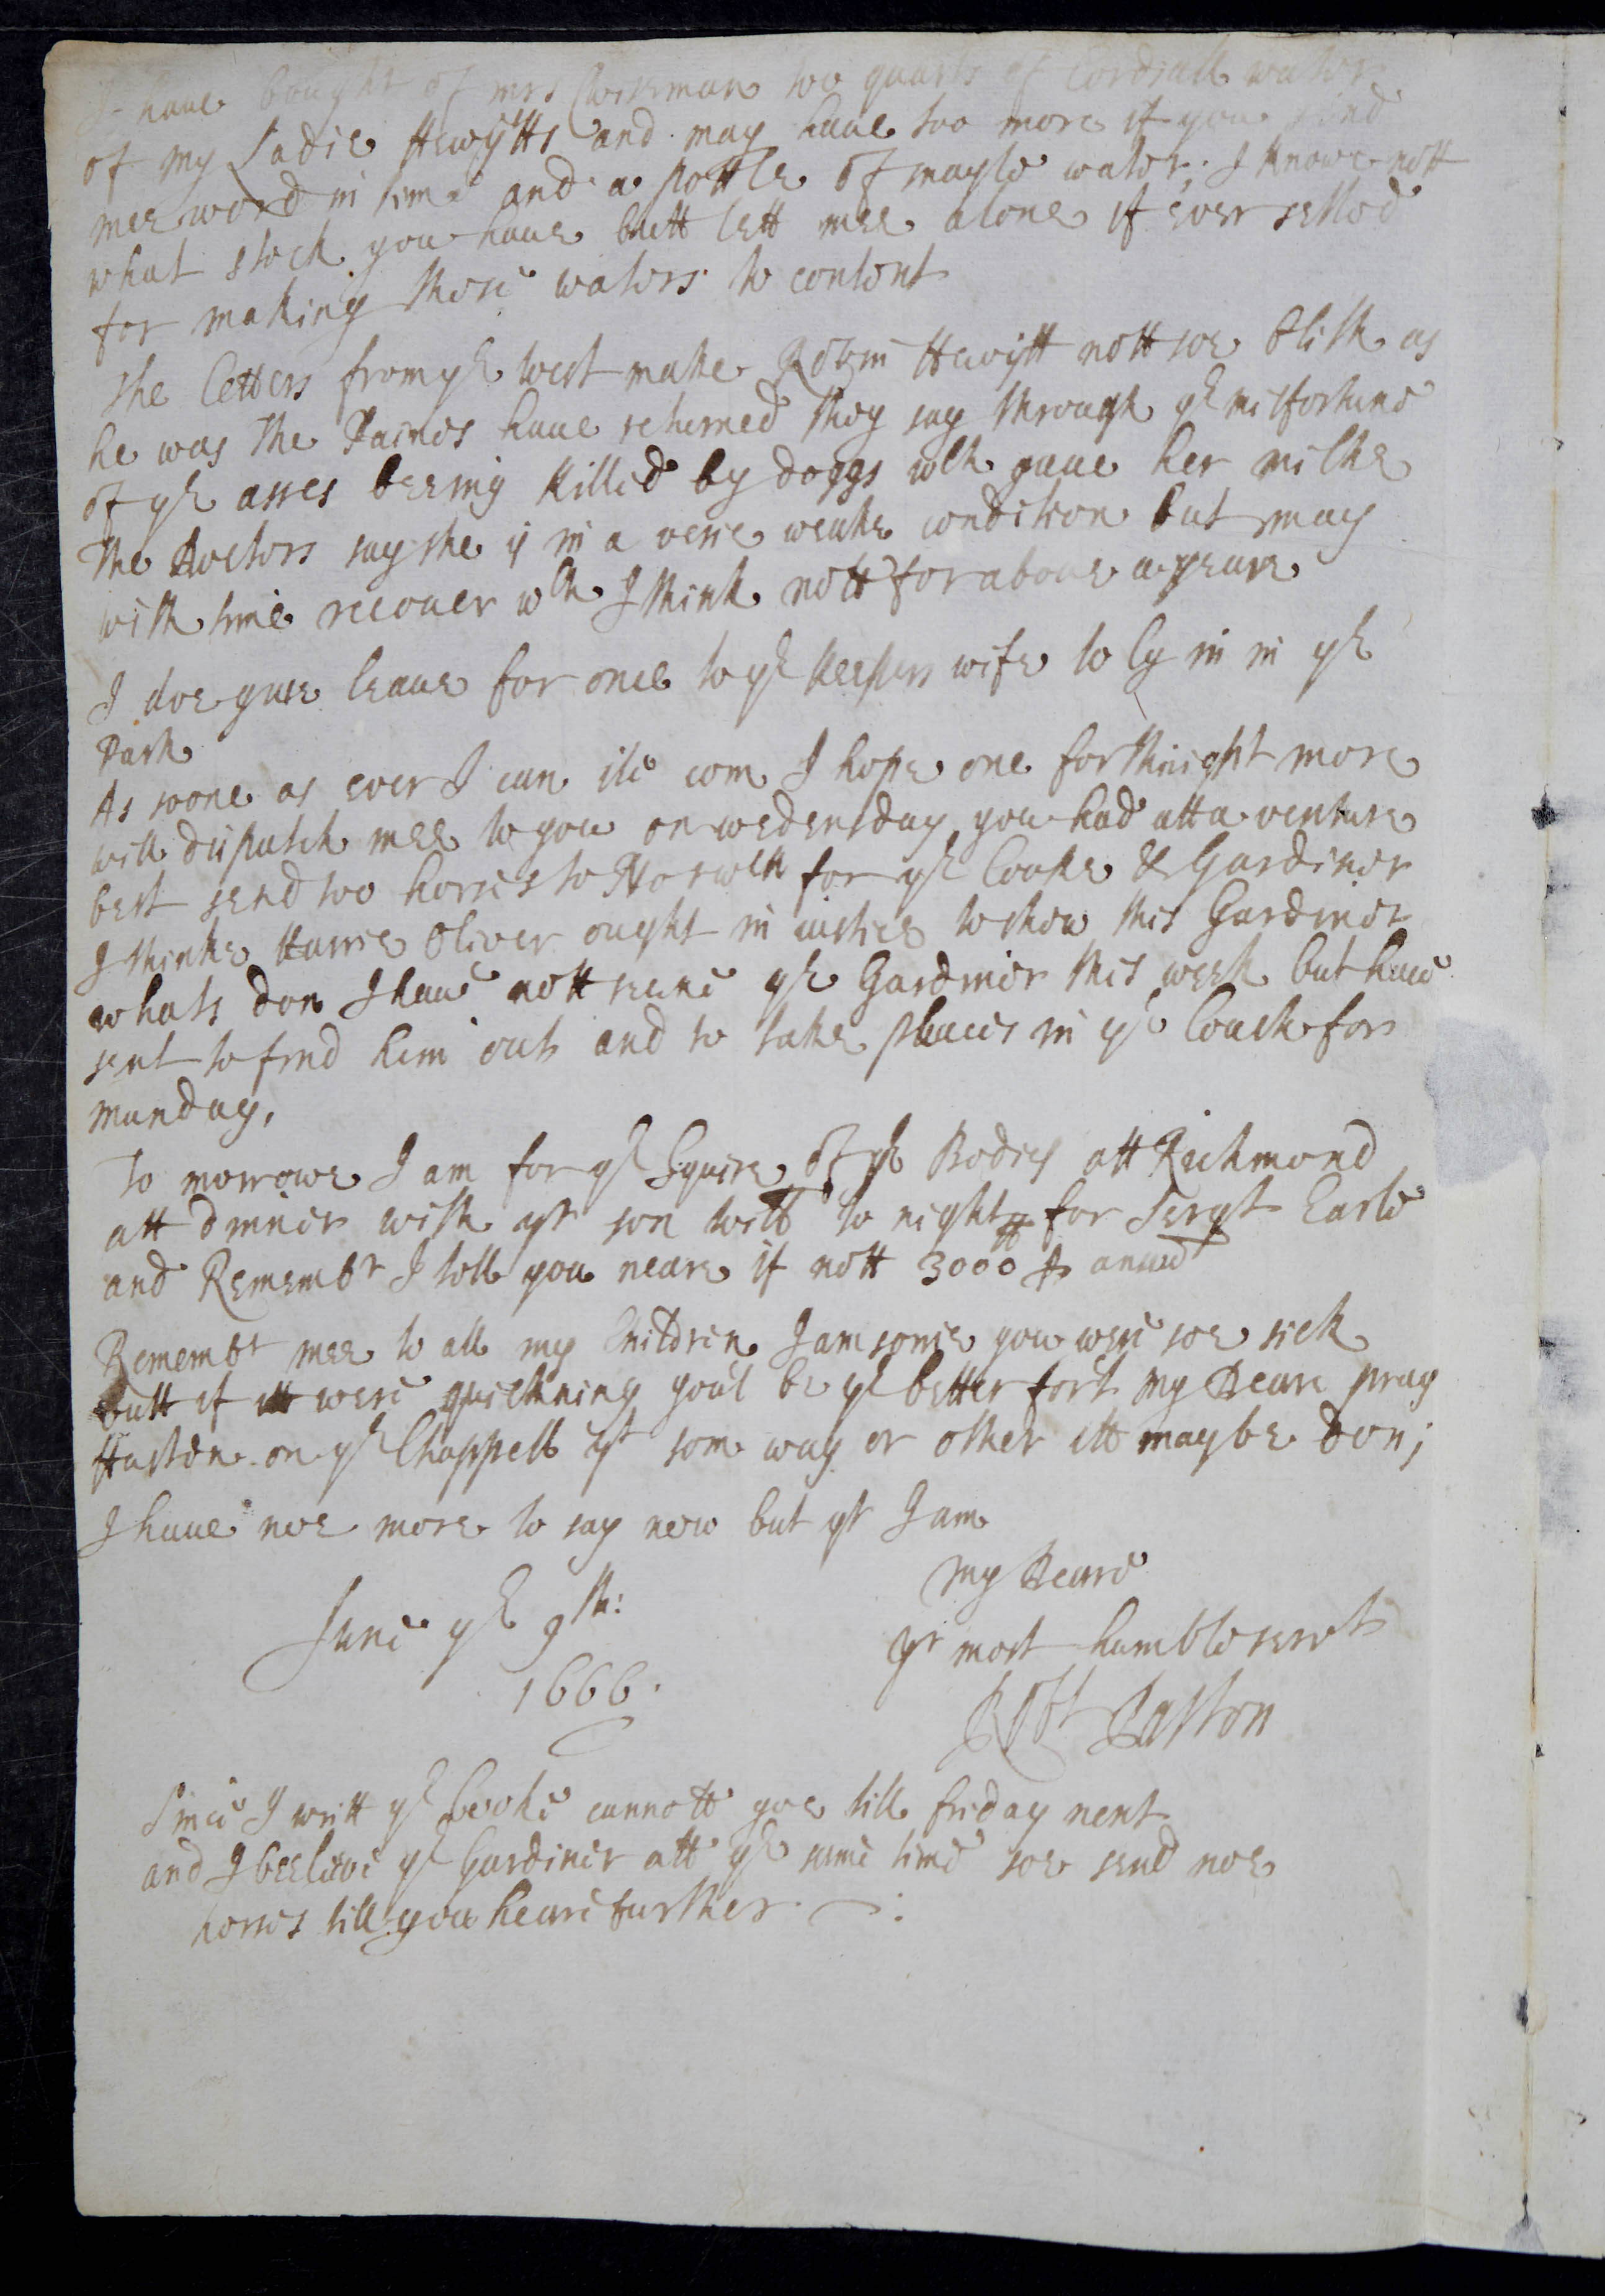 I haue bought of mrs Chereman two quarts of Cordiall water
of my Ladie Hewytts and may haue too more if you send
mee word in time and a pottle of mayle water; I knowe nott
what stock you haue butt lett mee alone if ever setled
for making those waters to content
The letters from ye west make Robin Hewytt nott soe blith as
he was The Paines haue returned they say through ye misfortune
of ye asses beeing killed by doggs wch gaue her milke
The Doctors say she is in a verie weake condition but may
with time recouer wch I think nott for aboue a yeare
I doe giue leaue for once to ye keepers wife to ly in in ye
Park
As soone as ever I can ile com I hope one forthnight more
will dispatch mee to you on wedensday you had att a venture
best send two horses to Norwch for ye Cooke & Gardiner
I thinke Harrie Oliver ought in iustice to show this Gardiner
whats don I haue nott seene ye Gardiner this week but haue
sent to find him out and to take places in ye Coach for
munday,
To morrowe I am for ye Squire of ye Bodies att Richmond
att dinner with yr son Will to night for Sergt Earle
and Remembr I tell you neare if nott 3000 ll p annu
Remembr mee to all my Children I am sorrie you were soe sick
butt if itt were quickning you'l be ye better for't my Deare pray
Hasten on ye Chappell yt som way or other itt may be don;
I haue noe more to say now but yt I am
My Deare
June ye 9th:
yr most humble servt
1666.
Robt Paston
Since I writt ye Cooke cannott goe till friday next
and I beeleive ye Gardiner att ye same time soe send noe
horses till you heare further :